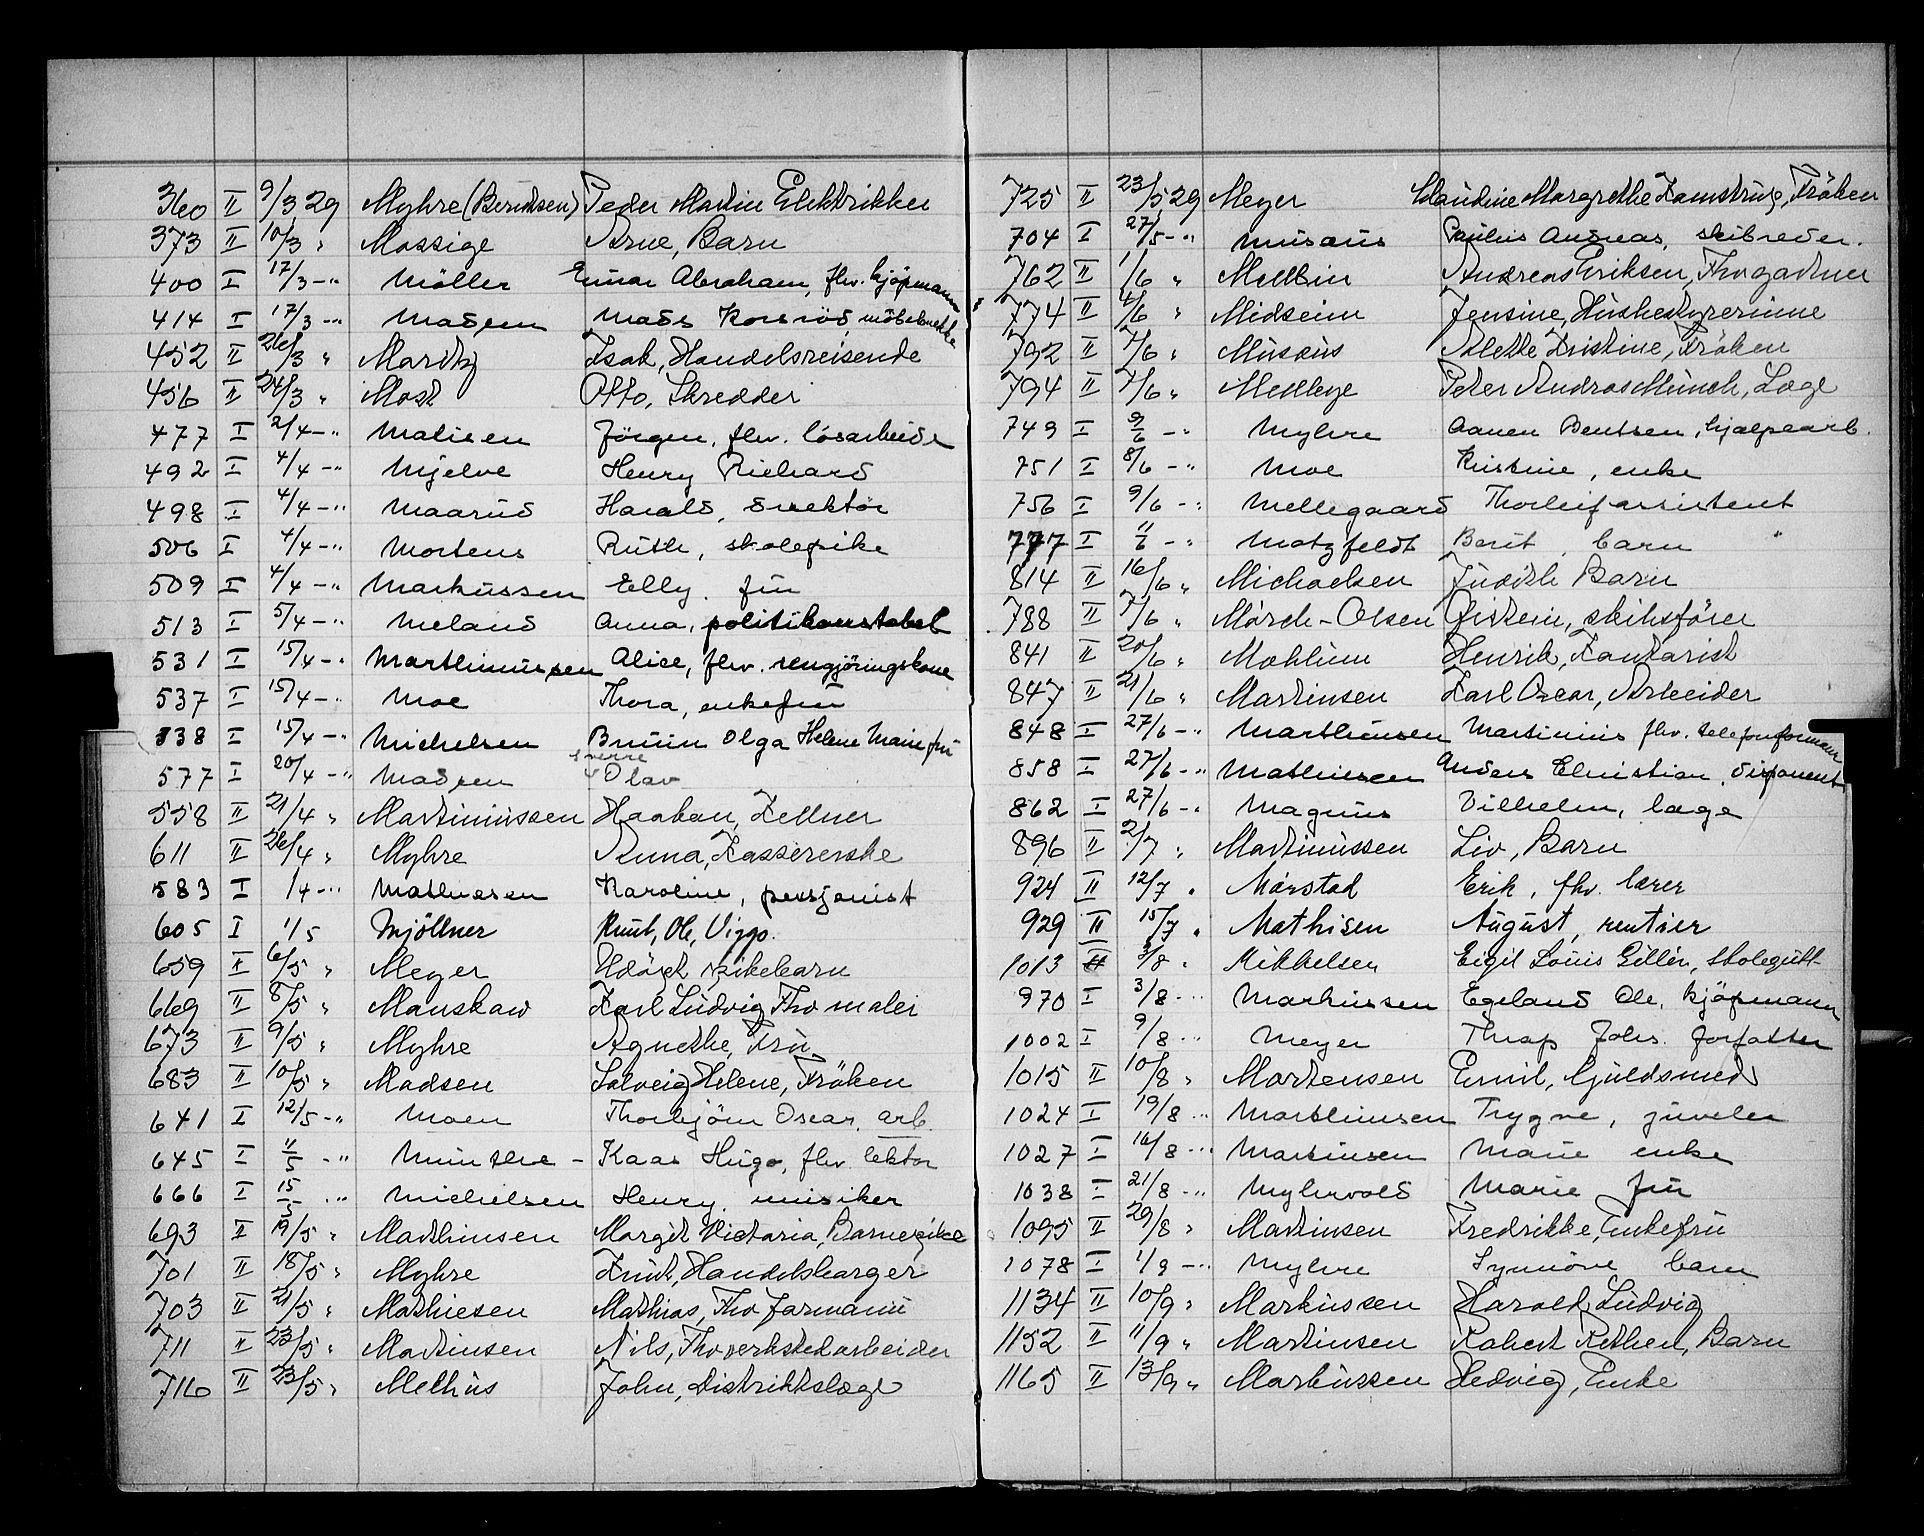 360 II 9/3 29 Myhre (Berntsen) Peder Martin Elektriker
373 II 10/3 " Massige Arne, Barn
400 I 17/3 -" Möller Einar Abraham, fhv. kjöpmann
414 I 17/3 -" Madsen Mads Korsröd, möbelsnekke
452 II 26/3 " Isak, Handelsreisende
456 II 24/3 " Most Otto, Skredder
477 I 2/4 -" Malisen Jörgen, fhv. lösarbeide
492 I 4/4 -" Mjelve Henry Richard
498 I 4/4 -" Maarud Harald, direktör
506 I 4/4 -" Mortens Ruth, skolepike
509 I 4/4 -" Markussen Elly. fru
513 I 5/4 -" Meland Anna, politikonstabel
531 I 15/4 -" Marthinussen Alice, fhv. rengjöringskone
537 I 15/4 -" Moe Thora, enkefru
538 I 15/4 -" Michelsen Bruun Olga Helene Marie fru
577 I 20/4 -" Madsen Sverre Olav
558 II 21/4 " Martiniussen Haakon, Kellner
611 II 26/4 " Myhre Anna, Kassererske
583 I 1/4 -" Mathiesen Karoline, pensjonist
605 I 1/5 Mjöllner Knut, Ole, Viggo.
659 II 6/5 " Meyer Udöpt pikebarn
669 II 8/5 " Manskow Karl Ludvig Fhv maler
673 II 9/5 " Myhre Agnethe, Fru
683 II 10/5 " Madsen Solveig Helene, Fröken
641 I 12/5 -" Moen Thorbjörn Oscar. arb.
645 I 11/5 -" Munthe - Kaas Hugo, fhv. lektor
666 I 15/5 -" Michelsen Henry. musiker
693 II 19/5 " Marthinsen Margit Victoria, Barnepike
701 II 18/5 " Myhre Knut, Handelsborger
703 II 21/5 " Mathiesen Mathias, Fhv formann
711 II 23/5 " Martinsen Nils, Fhv verkstedarbeider
716 II 23/5 " Melhus John, Distriktslæge
725 II 23/5 29 Meyer Claudine Margrethe Kamstrup, Fröken
704 I 27/5 -" Musæus Paulus Andreas, skibreder.
762 II 1/6 " Andreas Eriksen, Fhv gartner
774 II 4/6 " Midseim Jensine, Husbestyrerinne
792 II 7/6 " Musæus Alette Kristine, Fröken
794 II 7/6 " Medbye Peter Andreas Munch, Læge
749 I 9/6 -" Myhre Aanen Bentsen, hjælpearb.
751 I 8/6 -" Moe Kristine, enke
756 I 9/6 -" Mellegaard Thorleif assistent
777 I 11/6 -" Motzfeldt Berit, barn "
814 II 16/6 " Michaelsen Judith Barn
788 II 7/6 " Mörch-Olsen Öistein, skibsförer
841 II 20/6 " Mæhlum Henrik, Kontorist
847 II 21/6 " Martinsen Karl Oscar, Arbeider
848 I 27/6 -" Marthinsen Martinius fhv. telefonformann
858 I 27/6 -" Mathiesen Anders Christian, disponent
862 I 27/6 -" Magnus Vilhelm, læge
896 II 2/7 " Martinussen Liv, Barn
924 II 12/7 " Mörstad Erik, fhv. lærer
929 II 15/7 " Mathisen August, rentier
1013 II 3/8 " Mikkelsen Eigil Louis Gillèr, skolegutt
970 I 3/8 -" Markussen Egeland Ole, kjöpmann
1002 I 9/8 -" Meyer Thrap Johs. forfatter
1015 II 10/8 " Mortensen Emil, Guldsmed
1024 I 19/8 -" Marthinsen Trygve, juveler
1027 I 16/8 -" Martinsen Marie enke
1038 I 21/8 -" Myhrvold Marie fru
1095 II 29/8 " Martinsen Fredrikke, Enkefru
1078 I 1/9 -" Myhre Synnöve barn
1134 II 10/9 " Markussen Harald Ludvig
1152 II 11/9 " Martinsen Robert, Barn
1165 II 13/9 " Markussen Hedvig, Enke